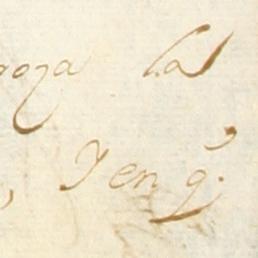 goza la
, Y en q.